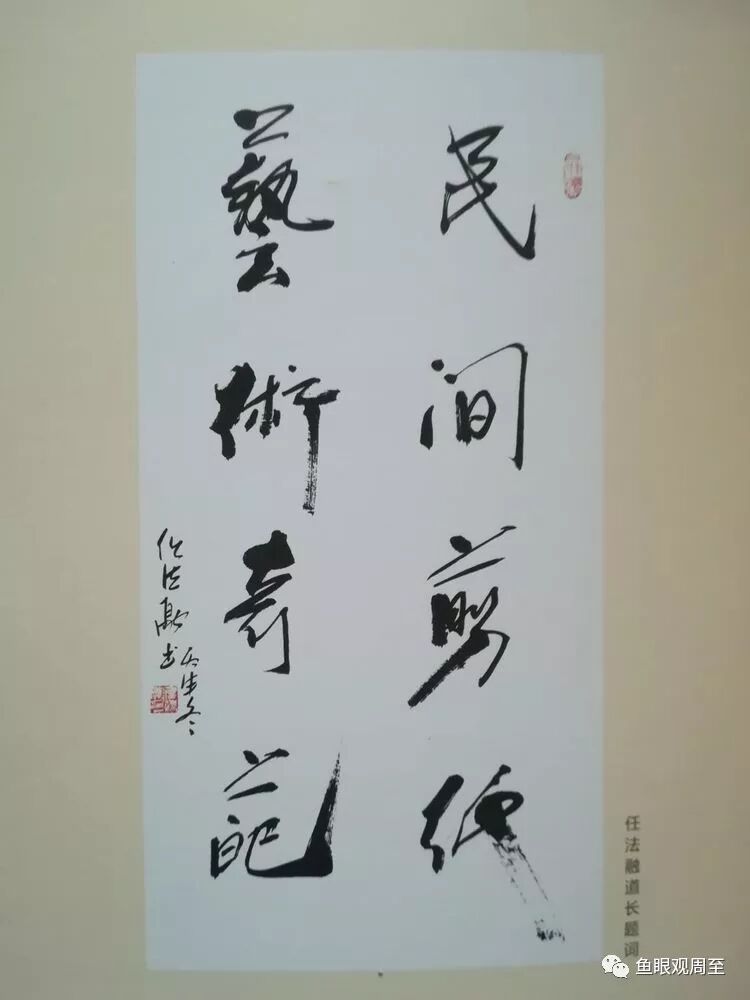 民间剪纸
藝術奇葩
任法融书
冬
任法融道长题词
鱼眼观周至